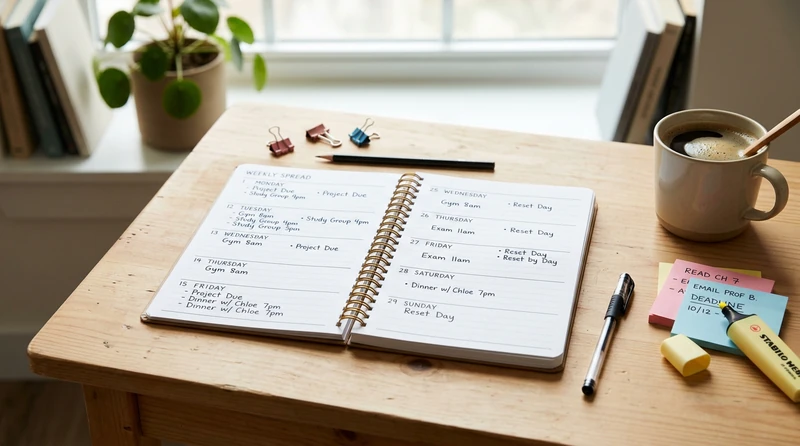 WEEKLY SPREAD
MONDAY
• Project Due • Project Due
- Study Group 4pm
12 TUESDAY
Gym 8am
- Study Group 4pm • Study Group 4pm
- Study Group 5pm
13 WEDNESDAY
Gym 8am • Project Due
14 THURSDAY
Gym 8am
15 FRIDAY
- Project Due
• Dinner w/ Chloe 7pm
• Dinner w/ Chloe 7pm
25 WEDNESDAY
Gym 8am • Reset Day
26 THURSDAY
Exam 11am • Reset Day
27 FRIDAY
Exam 11am • Reset Day
• Reset by Day
28 SATURDAY
• Dinner w/ Chloe 7pm
29 SUNDAY
Reset Day
READ CH 7
EMAIL PROF B.
DEADLINE
10/12 -
STABILO